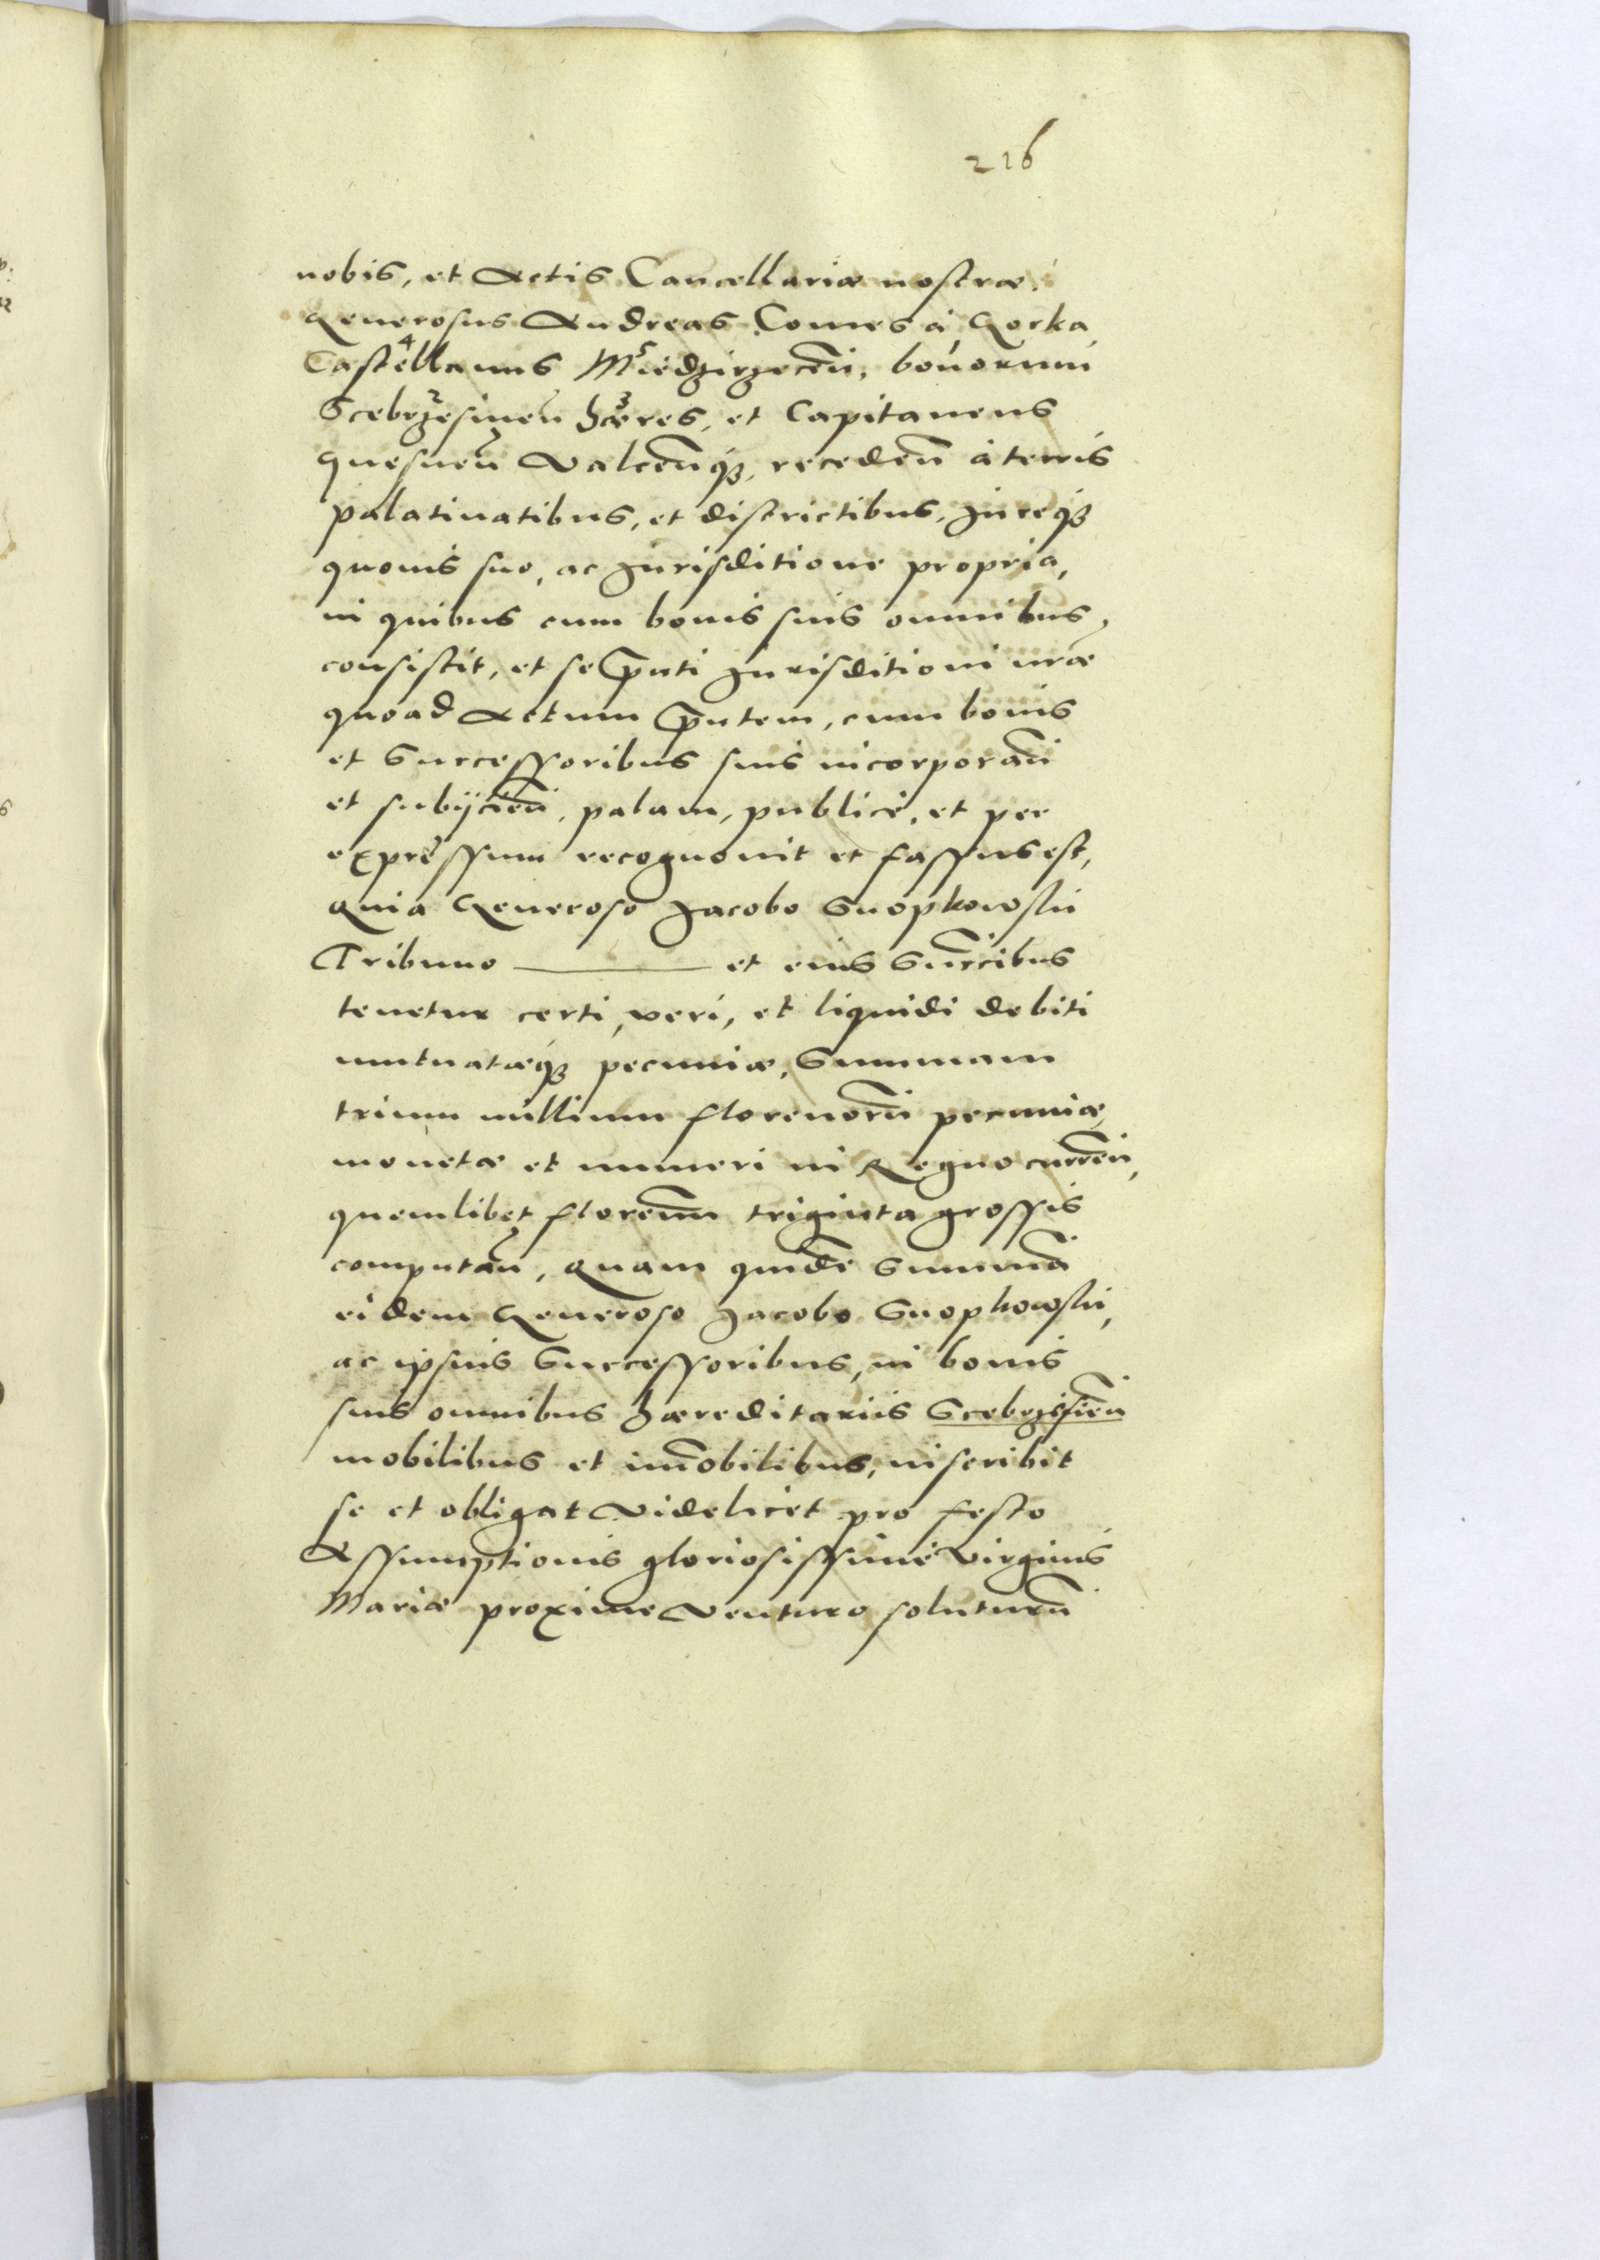 216
nobis, et Actis Cancellariæ nostræ.
Generosus Andreas Comes à Gorka
Castellanus Miedzirzecen̄, bonorum
Scebrzesinen̄ hæres, et Capitaneus
Gnesnen̄ Valcen̄q3, receden̄ à terris
palatinatibus, et districtibus, Jureq3
quouis suo, ac Jurisditione propria,
in quibus cum bonis suis omnibus,
consistit, et se p̄nti Jurisditioni nr̄æ
quoad Actum p̄ntem, cum bonis
et Successoribus suis incorporan̄
et subijcien̄, palam, publicè, et per
expressum recognouit et fassus est,
quia Generoso Jacobo Snopkowski
Tribuno ——— et eius Succ̄ibus
tenetur certi, veri, et liquidi debiti
mutuatæq3 pecuniæ, Summam
trium millium florenorū pecuniæ
monetæ et numeri in Regno curren̄,
quemlibet florenum triginta grossis
computan̄, quam quidē Summā
eidem Generoso Jacobo Snopkowski,
ac ipsius Successoribus, in bonis
suis omnibus hæreditariis Scebrzesien̄
mobilibus et im̄obilibus, inscribit
se et obligat videlicet pro festo
Assumptionis gloriosissimè virginis
Mariæ proxime venturo soluturū